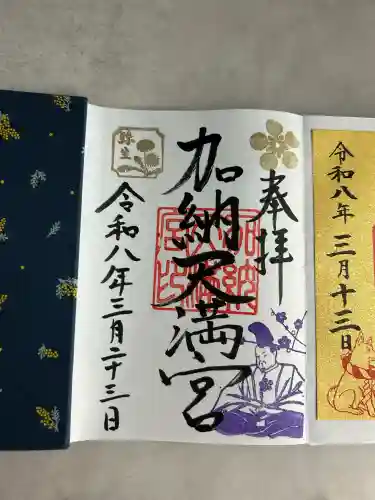 令和八年三月十三日
奉拝
加納天満宮
弥生
令和八年三月二十三日